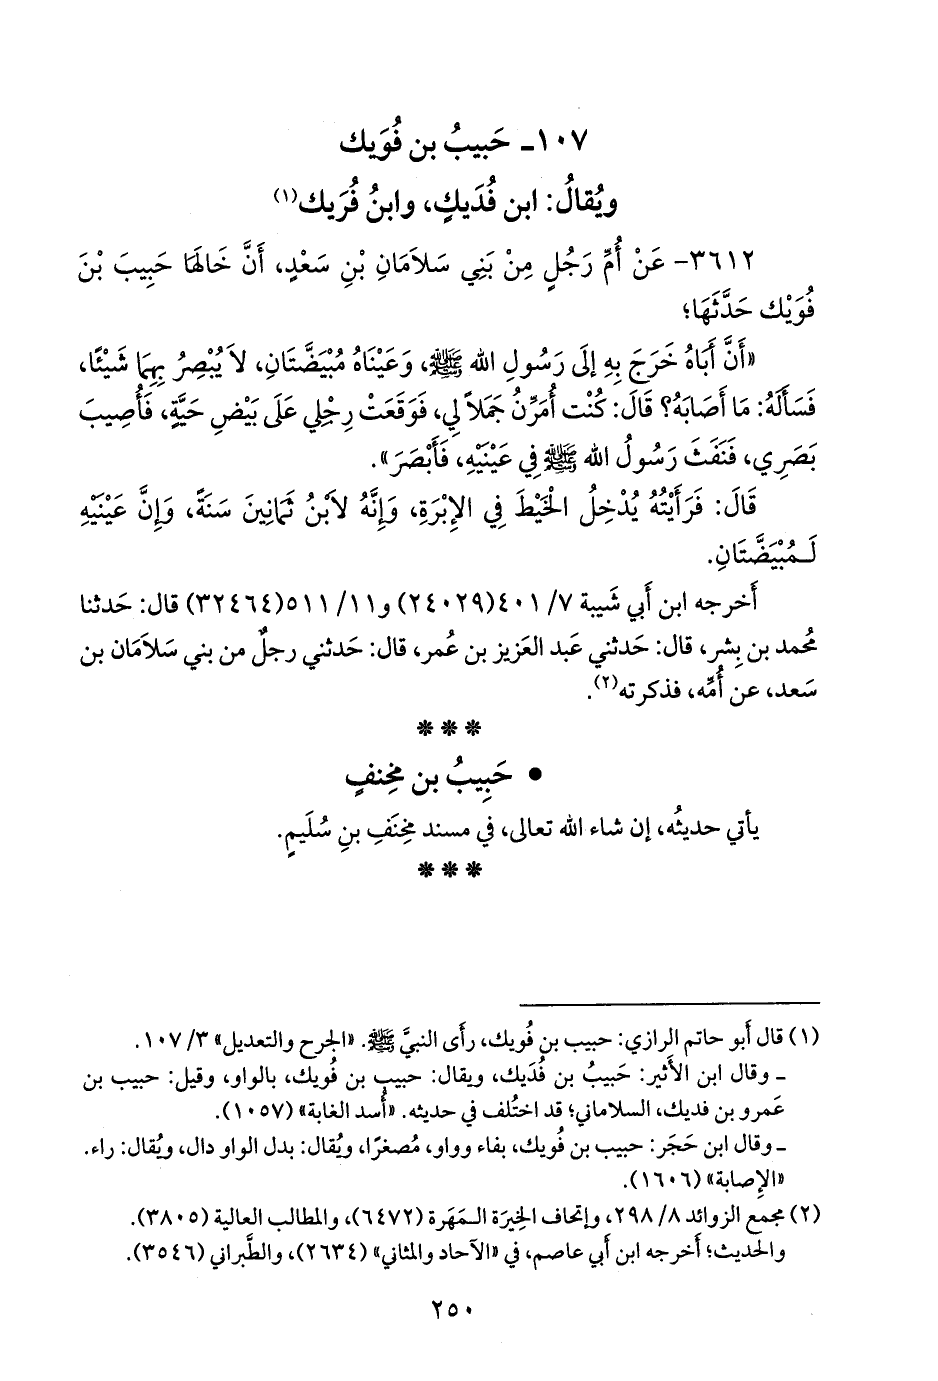 ١٠٧ـ حَبيبُ بن فُوَيك
ويُقالُ: ابن فُدَيكٍ، وابنُ فُرَيك(١)
٣٦١٢- عَنْ أُمِّ رَجُلٍ مِنْ بَنِي سَلاَمَانِ بْنِ سَعْدٍ، أَنَّ خَالَهَا حَبِيبَ بْنَ
فُوَيْك حَدَّثَهَا؛
«أَنَّ أَبَاهُ خَرَجَ بِهِ إِلَى رَسُولِ الله ﷺ، وَعَيْنَاهُ مُبْيَضَّتَانِ، لاَ يُبْصِرُ بِهِمَا شَيْئًا،
فَسَأَلَهُ: مَا أَصَابَهُ؟ قَالَ: كُنْت أُمَرِّنُ جَمَلاً لِي، فَوَقَعَتْ رِجْلِي عَلَى بَيْضِ حَيَّةٍ، فَأُصِيبَ
بَصَرِي، فَنَفَثَ رَسُولُ الله ﷺ فِي عَيْنَيْهِ، فَأَبْصَرَ».
قَالَ: فَرَأَيْتُهُ يُدْخِلُ الْخَيْطَ فِي الإِبْرَةِ، وَإِنَّهُ لاَبْنُ ثَمَانِينَ سَنَةً، وَإِنَّ عَيْنَيْهِ
لَـمُبْيَضَّتَانِ.
أَخرجه ابن أَبي شَيبة ٧/ ٤٠١(٢٤٠٢٩) و١١/ ٥١١(٣٢٤٦٤) قال: حَدثنا
مُحمد بن بِشر، قال: حَدثني عَبد العَزيز بن عُمر، قال: حَدثني رجلٌ من بني سَلاَمَان بن
سَعد، عن أُمِّه، فذكرته(٢).
* * *
• حَبِيبُ بن مِخنفٍ
يأتي حديثُه، إن شاء الله تعالى، في مسند مِخنَفِ بنِ سُلَيمٍ.
* * *
(١) قال أَبو حاتم الرازي: حبيب بن فُويك، رأى النبيَّ ﷺ. «الجرح والتعديل» ٣/ ١٠٧.
ـ وقال ابن الأَثير: حَبيبُ بن فُدَيك، ويقال: حبيب بن فُويك، بالواو، وقيل: حبيب بن
عَمرو بن فديك، السلاماني؛ قد اختُلف في حديثه. «أُسد الغابة» (١٠٥٧).
ـ وقال ابن حَجَر: حبيب بن فُويك، بفاء وواو، مُصغرًا، ويُقال: بدل الواو دال، ويُقال: راء.
«الإِصابة» (١٦٠٦).
(٢) مجمع الزوائد ٨/ ٢٩٨، وإتحاف الخِيرَة الـمَهَرة (٦٤٧٢)، والمطالب العالية (٣٨٠٥).
والحديث؛ أَخرجه ابن أَبي عاصم، في «الآحاد والمثاني» (٢٦٣٤)، والطَّبراني (٣٥٤٦).
٢٥٠